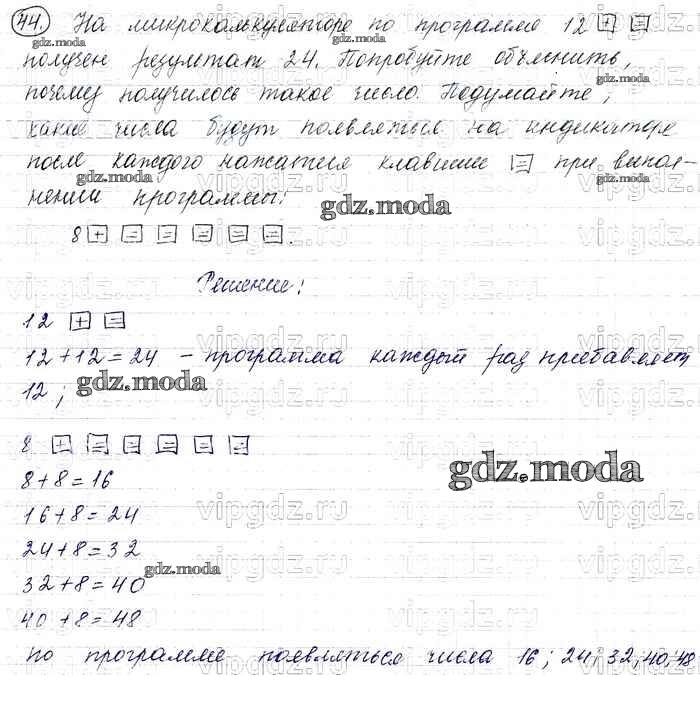 44. На микрокалькуляторе по программе 12 + =
получен результат 24. Попробуйте объяснить,
почему получилось такое число. Подумайте,
какие числа будут появляться на индикаторе
после каждого нажатия клавиши = при выпол-
нении программы:
8 + = = = = =.
Решение:
12 + =
12 + 12 = 24 – программа каждый раз прибавляет
12;
8 + = = = = =
8 + 8 = 16
16 + 8 = 24
24 + 8 = 32
32 + 8 = 40
40 + 8 = 48
по программе появляться числа 16; 24; 32; 40; 48
gdz.moda
vipgdz.ru